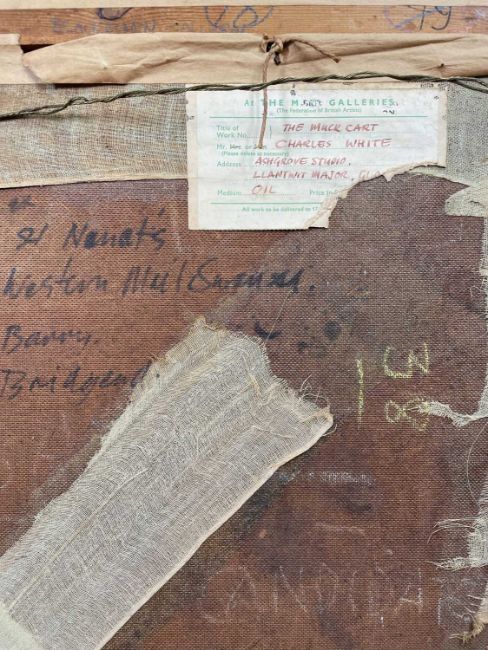 At THE MALL GALLERIES
(The Federation of British Artists)
Title of Work No. 1 THE MUCK CART
Mr. Mrs. or Miss CHARLES WHITE
(Please delete as necessary)
Address ASHGROVE STUDIO,
LLANTWIT MAJOR, GLA
Medium OIL Price in
All work to be delivered to 17
Western Mail Swansea.
Barry.
Bridgend.
38
1